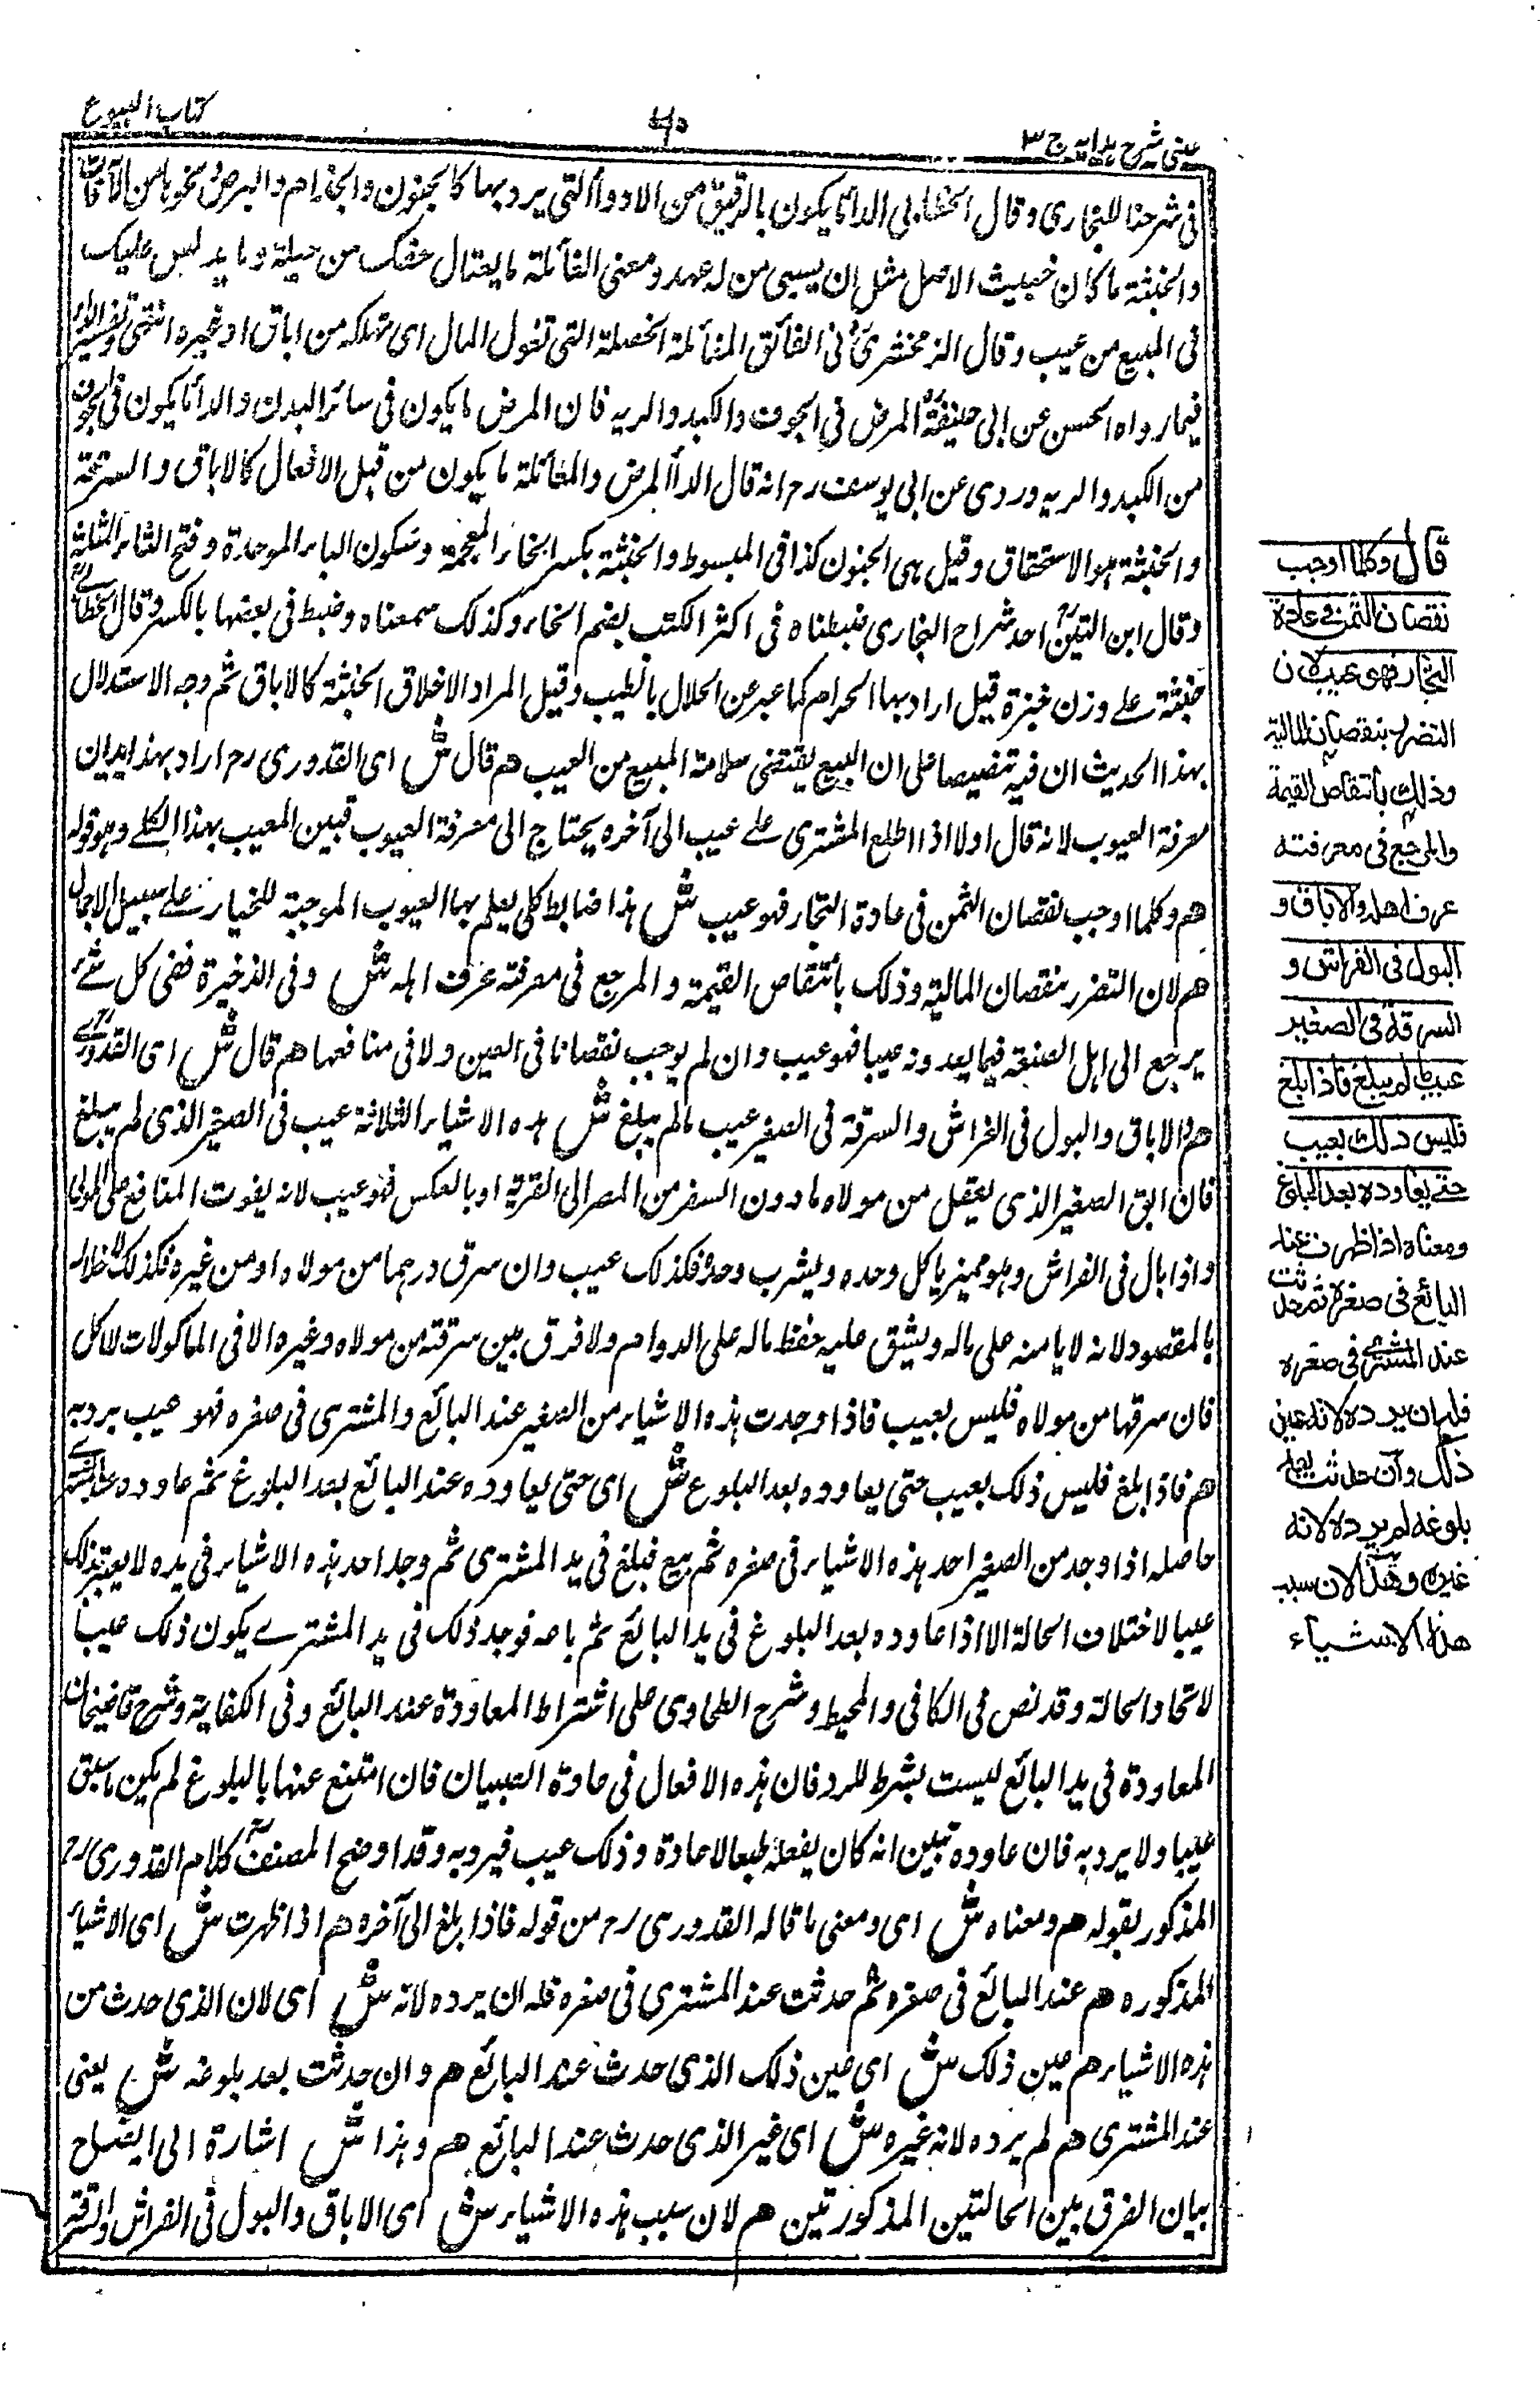 عینی شرح ہدایہ ج ۳
کتاب البیوع
فی شرحنا للبخاری وقال الخطابی الداء ما یکون بالرقیق من الادواء التی یرد بہا کالجنون والجذام والبرص ونحوہا من الآفات
والخبثۃ ما کان خبیث الاصل مثل ان یسبی من لہ عہد ومعنی الغائلۃ ما یغتال حقک من حیلۃ وما یدلس علیک
فی المبیع من عیب وقال الزمخشری فی الفائق الغائلۃ الخصلۃ التی تغول المال ای تہلکہ من اباق او غیرہ انتہی وتفسیر الداء
فیما رواہ الحسن عن ابی حنیفۃ المرض فی الجوف والکبد والریہ فان المرض ما یکون فی سائر البدن والداء ما یکون فی الجوف
من الکبد والریہ وروی عن ابی یوسف رح انہ قال الداء المرض والغائلۃ ما یکون من قبل الافعال کالاباق والسرقۃ
والخبثۃ ہو الاستحقاق وقیل ہی الجنون کذا فی المبسوط والخبثۃ بکسر الخاء المعجمۃ وسکون الباء الموحدۃ وفتح الثاء المثلثۃ
وقال ابن التین احد شراح البخاری ضبطناہ فی اکثر الکتب بضم الخاء وکذلک سمعناہ وضبط فی بعضہا بالکسر وقال الخطابی
خبثۃ علے وزن خبزۃ قیل اراد بہا الحرام کما عبر عن الحلال بالطیب وقیل المراد الاخلاق الخبثۃ کالاباق ثم وجہ الاستدلال
بہذا الحدیث ان فیہ تنصیصا علی ان البیع یقتضی سلامۃ المبیع من العیب ھم قال ش ای القدوری رح اراد بہذا بیان
معرفۃ العیوب لانہ قال اولا اذا اطلع المشتری علے عیب الی آخرہ یحتاج الی معرفۃ العیوب فبین العیب بہذا الکلے وہو قولہ
ھم وکلما اوجب نقصان الثمن فی عادۃ التجار فہو عیب ش ہذا ضابط کلی یعلم بہا العیوب الموجبۃ للخیار علے سبیل الاجمال
ھم لان التضرر بنقصان المالیۃ وذلک بانتقاص القیمۃ والمرجع فی معرفتہ عرف اہلہ ش وفی الذخیرۃ ففی کل شئ
یرجع الی اہل الصنعۃ فیما یعدونہ عیبا فہو عیب وان لم یوجب نقصانا فی العین ولا فی منافعہا ھم قال ش ای القدوری
ھم والاباق والبول فی الفراش والسرقۃ فی الصغیر عیب مالم یبلغ ش ہذہ الاشیاء الثلاثۃ عیب فی الصغیر الذی لم یبلغ
فان ابق الصغیر الذی یعقل من مولاہ ما دون السفر من المصر الی القریۃ او بالعکس فہو عیب لانہ یفوت المنافع علی المولی
واذا بال فی الفراش وہو ممیز یاکل وحدہ ویشرب وحدہ فکذلک عیب وان سرق درہما من مولاہ او من غیرہ فکذلک لاخلالہ
بالمقصود لانہ لا یامنہ علی مالہ ویشق علیہ حفظ مالہ علی الدوام ولا فرق بین سرقتہ من مولاہ وغیرہ الا فی الماکولات لاکل
فان سرقہا من مولاہ فلیس بعیب فاذا وجدت ہذہ الاشیاء من الصغیر عند البائع والمشتری فی صغرہ فہو عیب یرد بہ
ھم فاذا بلغ فلیس ذلک بعیب حتی یعاودہ بعد البلوغ ش ای حتی یعاودہ عند البائع بعد البلوغ ثم عاودہ عند المشتری
حاصلہ اذا وجد من الصغیر احد ہذہ الاشیاء فی صغرہ ثم بیع فبلغ فی ید المشتری ثم وجد احد ہذہ الاشیاء فی یدہ لا یعتبر ذلک
عیبا لاختلاف الحالۃ الا اذا عاودہ بعد البلوغ فی ید البائع ثم باعہ فوجد ذلک فی ید المشترے یکون ذلک عیبا
لاتحاد الحالۃ وقد نص فی الکافی والمحیط وشرح الطحاوی علی اشتراط المعاودۃ عند البائع وفی الکفایۃ وشرح قاضیخان
المعاودۃ فی ید البائع لیست بشرط للرد فان ہذہ الافعال فی عادۃ الصبیان فان امتنع عنہا بالبلوغ لم یکن ما سبق
عیبا ولا یرد بہ فان عاودہ تبین انہ کان یفعلہ طبعا لا عادۃ وذلک عیب فیرد بہ وقد اوضح المصنف کلام القدوری رح
المذکور بقولہ ھم ومعناہ ش ای ومعنی ما قالہ القدوری رح من قولہ فاذا بلغ الی آخرہ ھم اذا ظہرت ش ای الاشیاء
المذکورہ ھم عند البائع فی صغرہ ثم حدثت عند المشتری فی صغرہ فلہ ان یردہ لانہ ش ای لان الذی حدث من
ہذہ الاشیاء ھم عین ذلک ش ای عین ذلک الذی حدث عند البائع ھم وان حدثت بعد بلوغہ ش یعنی
عند المشتری ھم لم یردہ لانہ غیرہ ش ای غیر الذی حدث عند البائع ھم وہذا ش اشارۃ الی ایضاح
بیان الفرق بین الحالتین المذکورتین ھم لان سبب ہذہ الاشیاء ش ای الاباق والبول فی الفراش والسرقۃ
قال وکلما اوجب
نقصان الثمن فی عادۃ
التجار فهو عیب لان
التضرر بنقصان المالیة
وذلك بانتقاص القیمة
والمرجع فی معرفته
عرف اهله والاباق و
البول فی الفراش و
السرقة فی الصغیر
عیب ما لم یبلغ فاذا بلغ
فلیس ذلك بعیب
حتے یعاوده بعد البلوغ
ومعناه اذا ظهرت عند
البائع فی صغره ثم حدثت
عند المشتری فی صغره
فله ان یرده لانه عین
ذلك وان حدثت بعد
بلوغه لم یرده لانه
غیره وهذا لان سبب
هذه الاشیاء